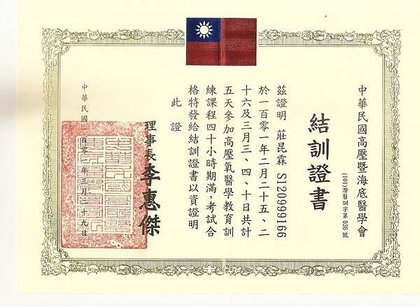 中華民國高壓暨海底醫學會
結訓證書
茲證明 莊昆霖 S120999166
於一百零一年二月二十五、二
十六及三月三、四、十日共計
五天參加高壓氧醫學教育訓
練課程四十小時期滿,考試合
格特發給結訓證書以資證明
此證
理事長 李惠傑
中華民國一百零一年三月十九日